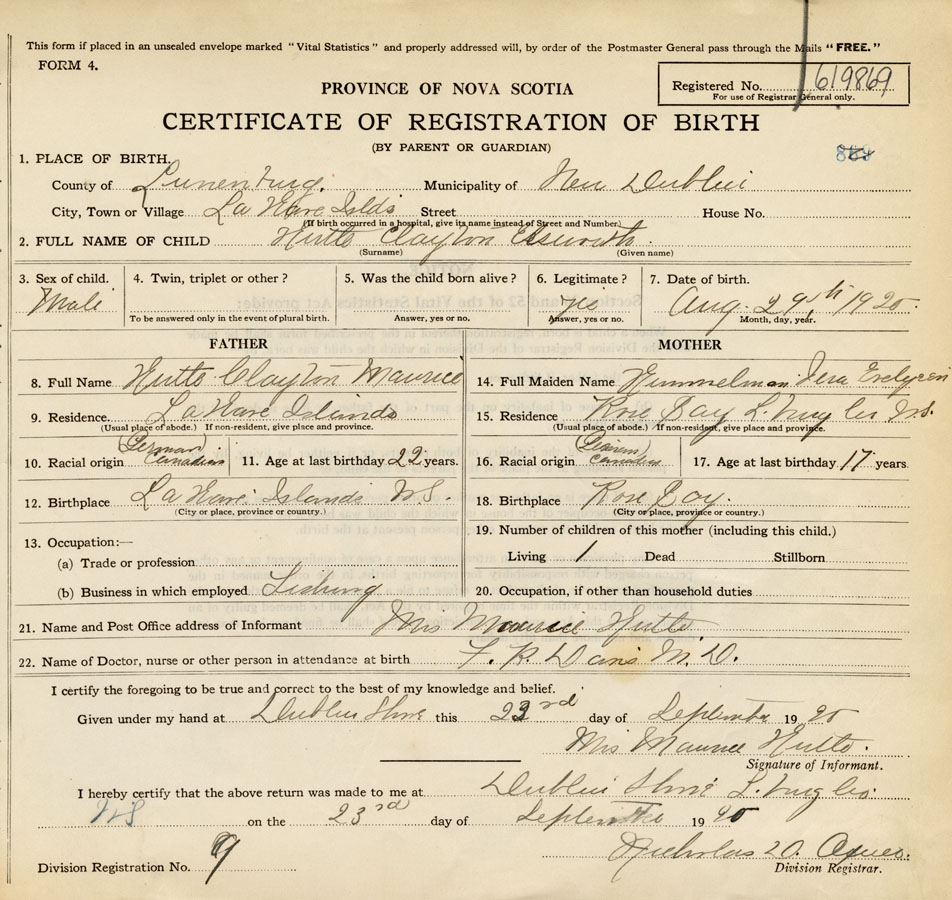 This form if placed in an unsealed envelope marked "Vital Statistics" and properly addressed will, by order of the Postmaster General pass through the Mails "FREE."
FORM 4.
Registered No. 619869
For use of Registrar General only.
PROVINCE OF NOVA SCOTIA
CERTIFICATE OF REGISTRATION OF BIRTH
(BY PARENT OR GUARDIAN)
869
1. PLACE OF BIRTH.
County of Lunenburg. Municipality of New Dublin
City, Town or Village La Have Islds Street House No.
(If birth occurred in a hospital, give its name instead of Street and Number)
2. FULL NAME OF CHILD Clayton
(Surname) (Given name)
3. Sex of child. 4. Twin, triplet or other? 5. Was the child born alive? 6. Legitimate? 7. Date of birth.
Male yes Aug. 29th 1920
To be answered only in the event of plural birth. Answer, yes or no. Answer, yes or no. Month, day, year.
FATHER MOTHER
8. Full Name Clayton Maurice
14. Full Maiden Name
9. Residence. La Have Islands
(Usual place of abode.) If non-resident, give place and province.
15. Residence Rose Bay
(Usual place of abode.) If non-resident, give place and province.
10. Racial origin German Canadian 11. Age at last birthday 22 years.
16. Racial origin 17. Age at last birthday 17 years
12. Birthplace La Have Islands N.S.
(City or place, province or country.)
18. Birthplace Rose Bay.
(City or place, province or country.)
13. Occupation:—
19. Number of children of this mother (including this child.)
(a) Trade or profession
Living 1 Dead Stillborn
(b) Business in which employed Fishing
20. Occupation, if other than household duties
21. Name and Post Office address of Informant Mrs Maurice
22. Name of Doctor, nurse or other person in attendance at birth F. R. Davis M.D.
I certify the foregoing to be true and correct to the best of my knowledge and belief.
Given under my hand at Dublin Shore this 23rd day of September 1920
Mrs Maurice
Signature of Informant.
I hereby certify that the above return was made to me at Dublin Shore
NS on the 23rd day of September 1920
Nicholas
Division Registration No. 9
Division Registrar.